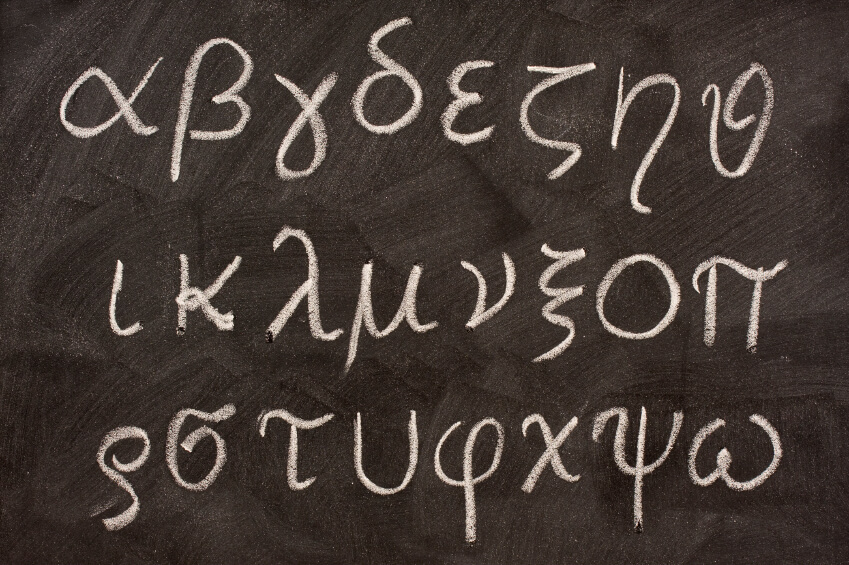 α β γ δ ε ζ η θ
ι κ λ μ ν ξ ο π
ρ σ τ υ φ χ ψ ω